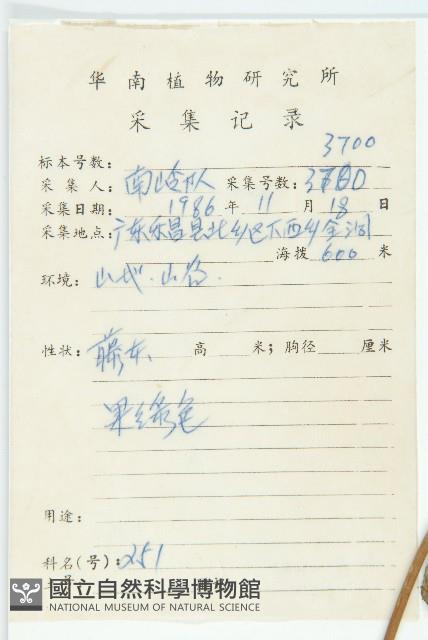 华南植物研究所
采集记录
3700
标本号数:
采集人: 南岭队 采集号数: 3700
采集日期: 1986年 11月 18日
采集地点: 广东乐昌县北乡区下西乡金洞
海拨 600 米
环境: 山地.山谷.
性状: 藤本 高 米; 胸径 厘米
果绿色
用途:
科名(号): 251
國立自然科學博物館
NATIONAL MUSEUM OF NATURAL SCIENCE